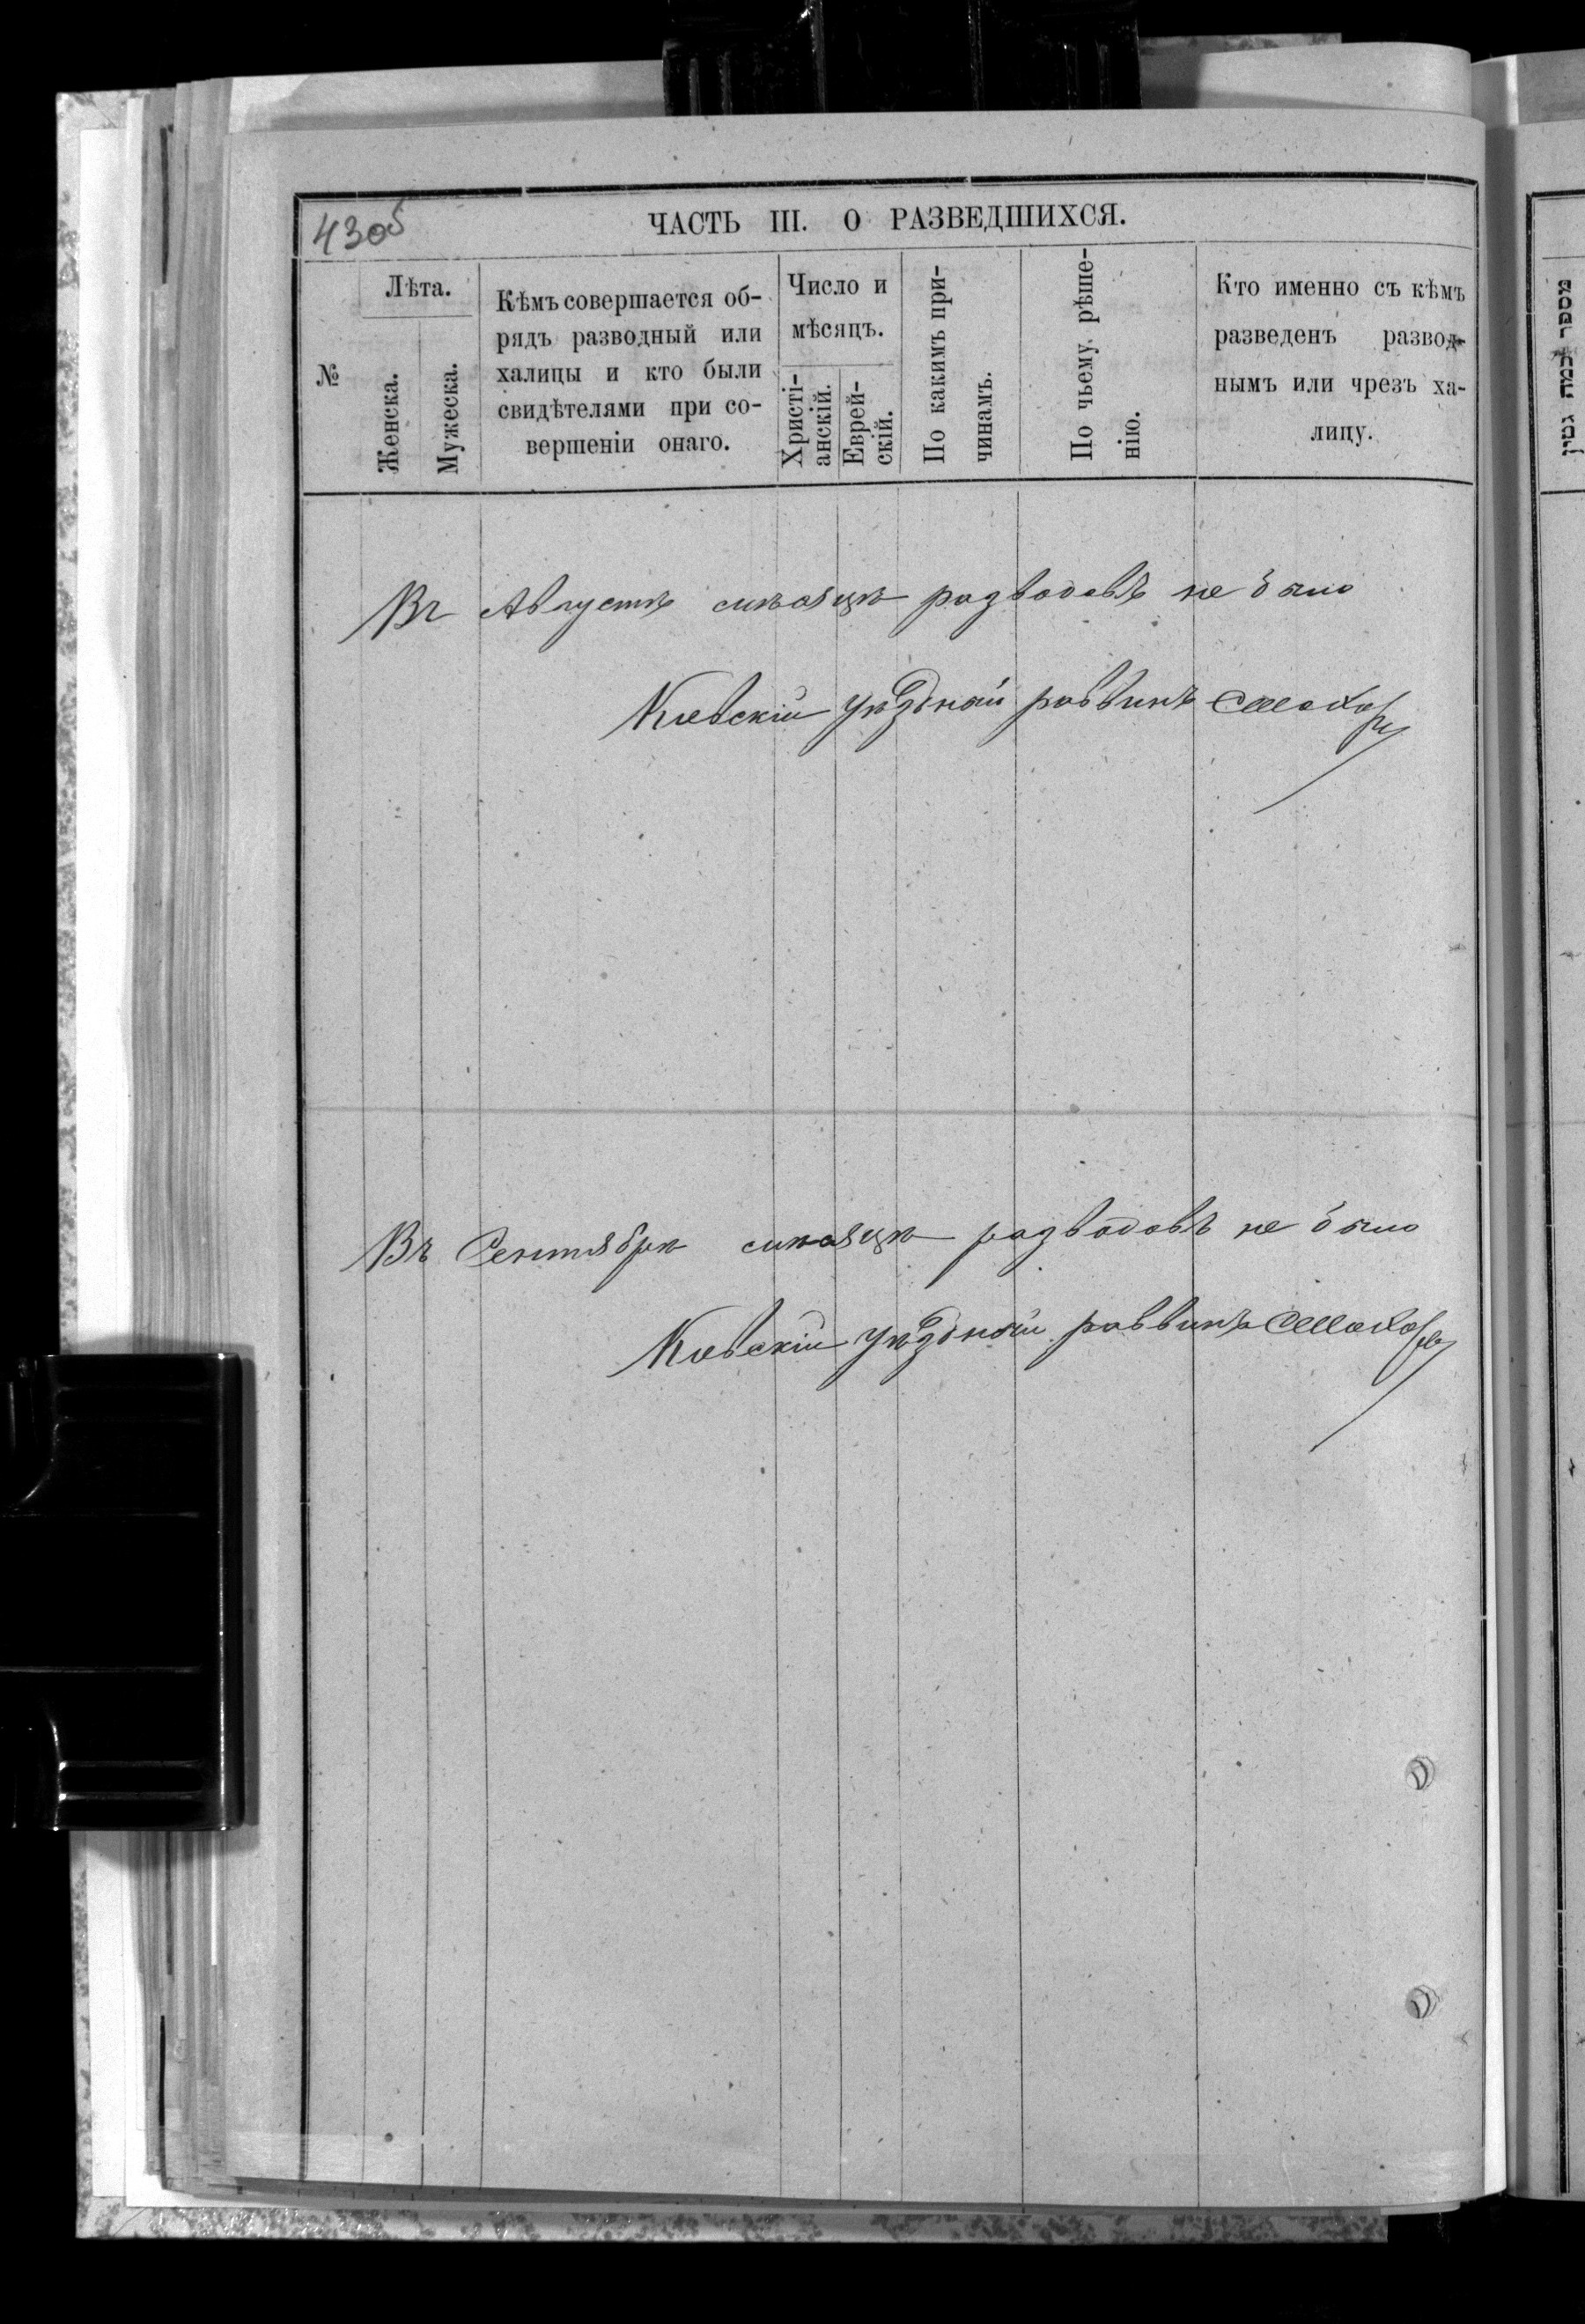 430б
ЧАСТЬ III. О РАЗВЕДШИХСЯ.
№
Лѣта.
Женска.
Мужеска.
Кѣмъ совершается об-
рядъ разводный или
халицы и кто были
свидѣтелями при со-
вершеніи онаго.
Число и
мѣсяцъ.
Христі-
анскій.
Еврей-
скій.
По какимъ при-
чинамъ.
По чьему рѣше-
нію.
Кто именно съ кѣмъ
разведенъ развод-
нымъ или чрезъ ха-
лицу.
Въ Августѣ мѣсяцѣ разводовъ не было
Кіевскій уѣздный раввинъ
Въ Сентябрѣ мѣсяцѣ разводовъ не было
Кіевскій уѣздный раввинъ
מספר כמה גטין